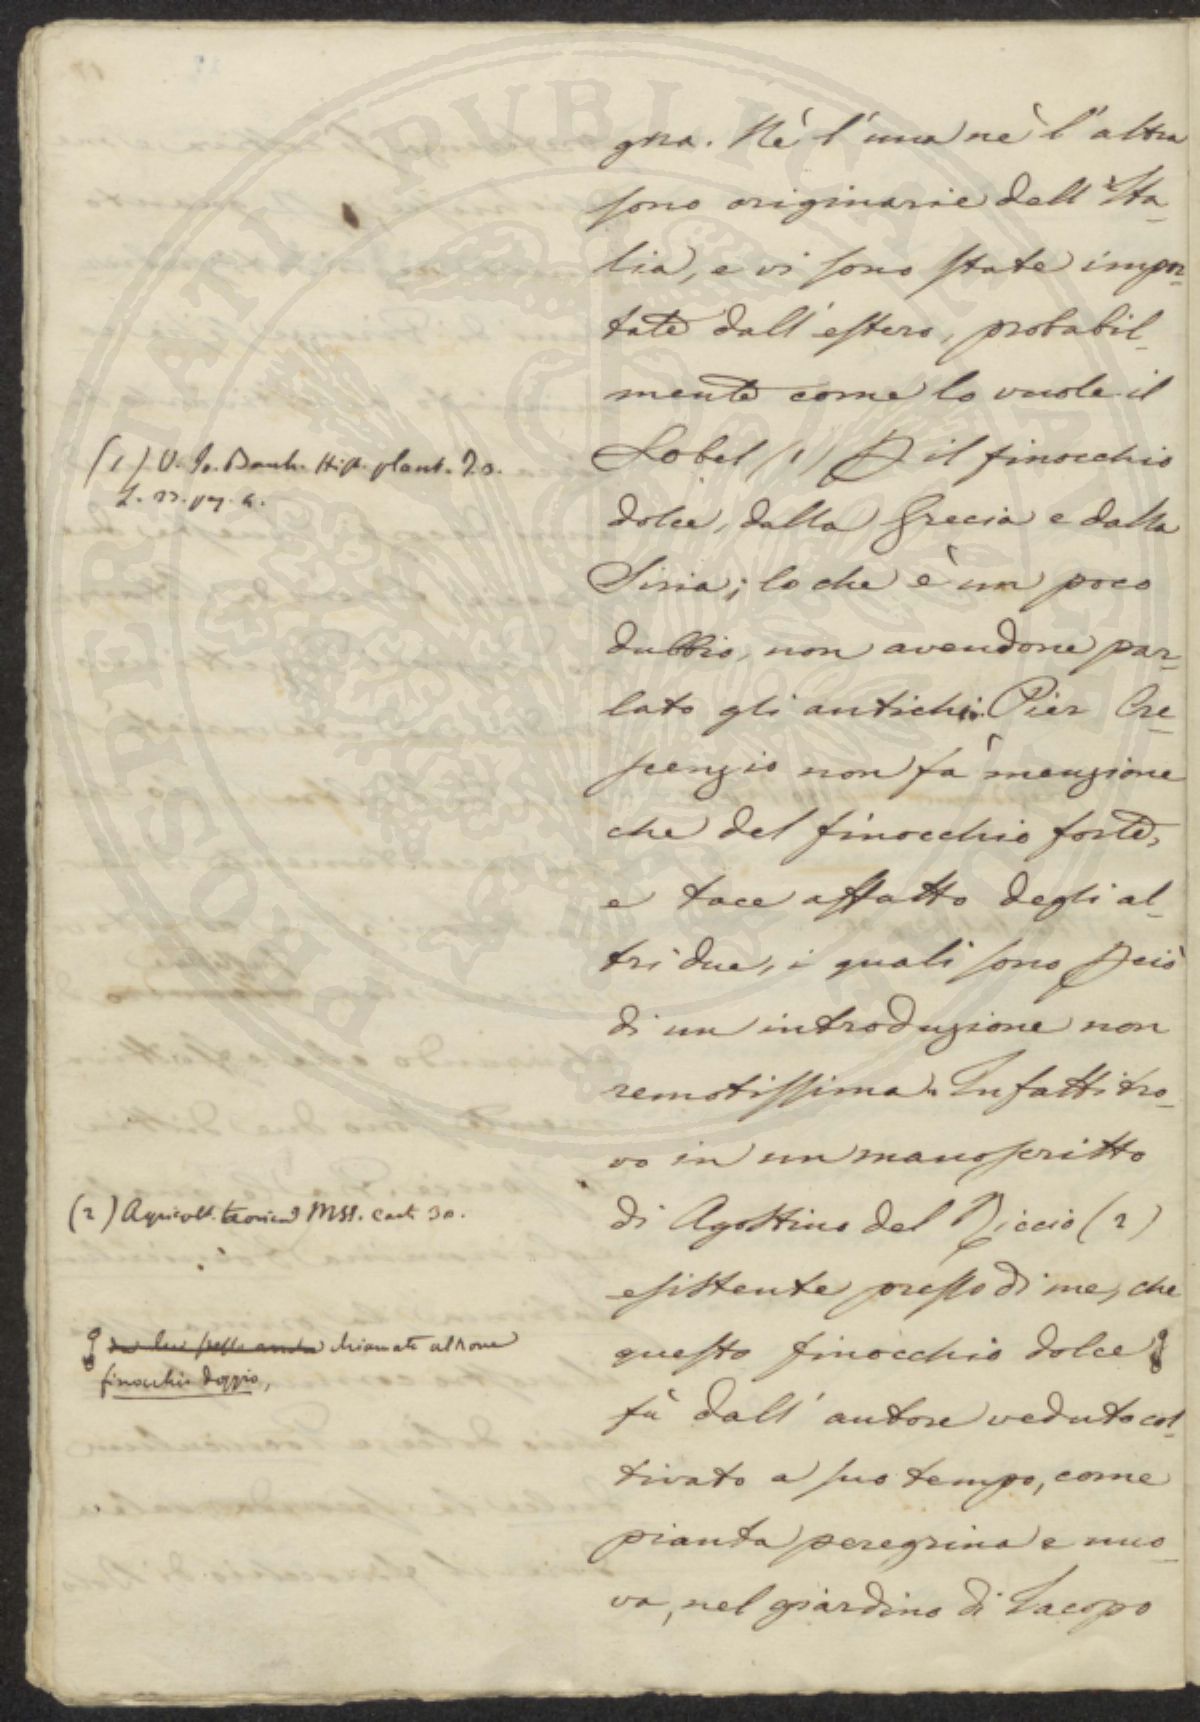 gna. Nè l'una nè l'altra
sono originarie dell'Ita-
lia, e vi sono state impor-
tate dall'estero, probabil-
mente come lo vuole il
Lobel (1) il finocchio
dolce, dalla Grecia e dalla
Siria; lo che è un poco
dubbio, non avendone par-
lato gli antichi. Pier Cre-
scenzio non fà menzione
che del finocchio forte,
e tace affatto degli al-
tri due, i quali sono perciò
di un introduzione non
remotissima. Infatti tro-
vo in un manoscritto
di Agostino del Riccio (2)
esistente presso di me, che
questo finocchio dolce
fù dall'autore veduto col-
tivato a suo tempo, come
pianta peregrina e nuo-
va, nel giardino di Iacopo
(1) V. Jo. Bauh. Hist. plant. To.
pag. 4.
(2) Agricolt. teorica MSS. cart. 30.
chiamato altrove
finocchio doppio,
POSPERITATI PUBLICAE AUGENDAE